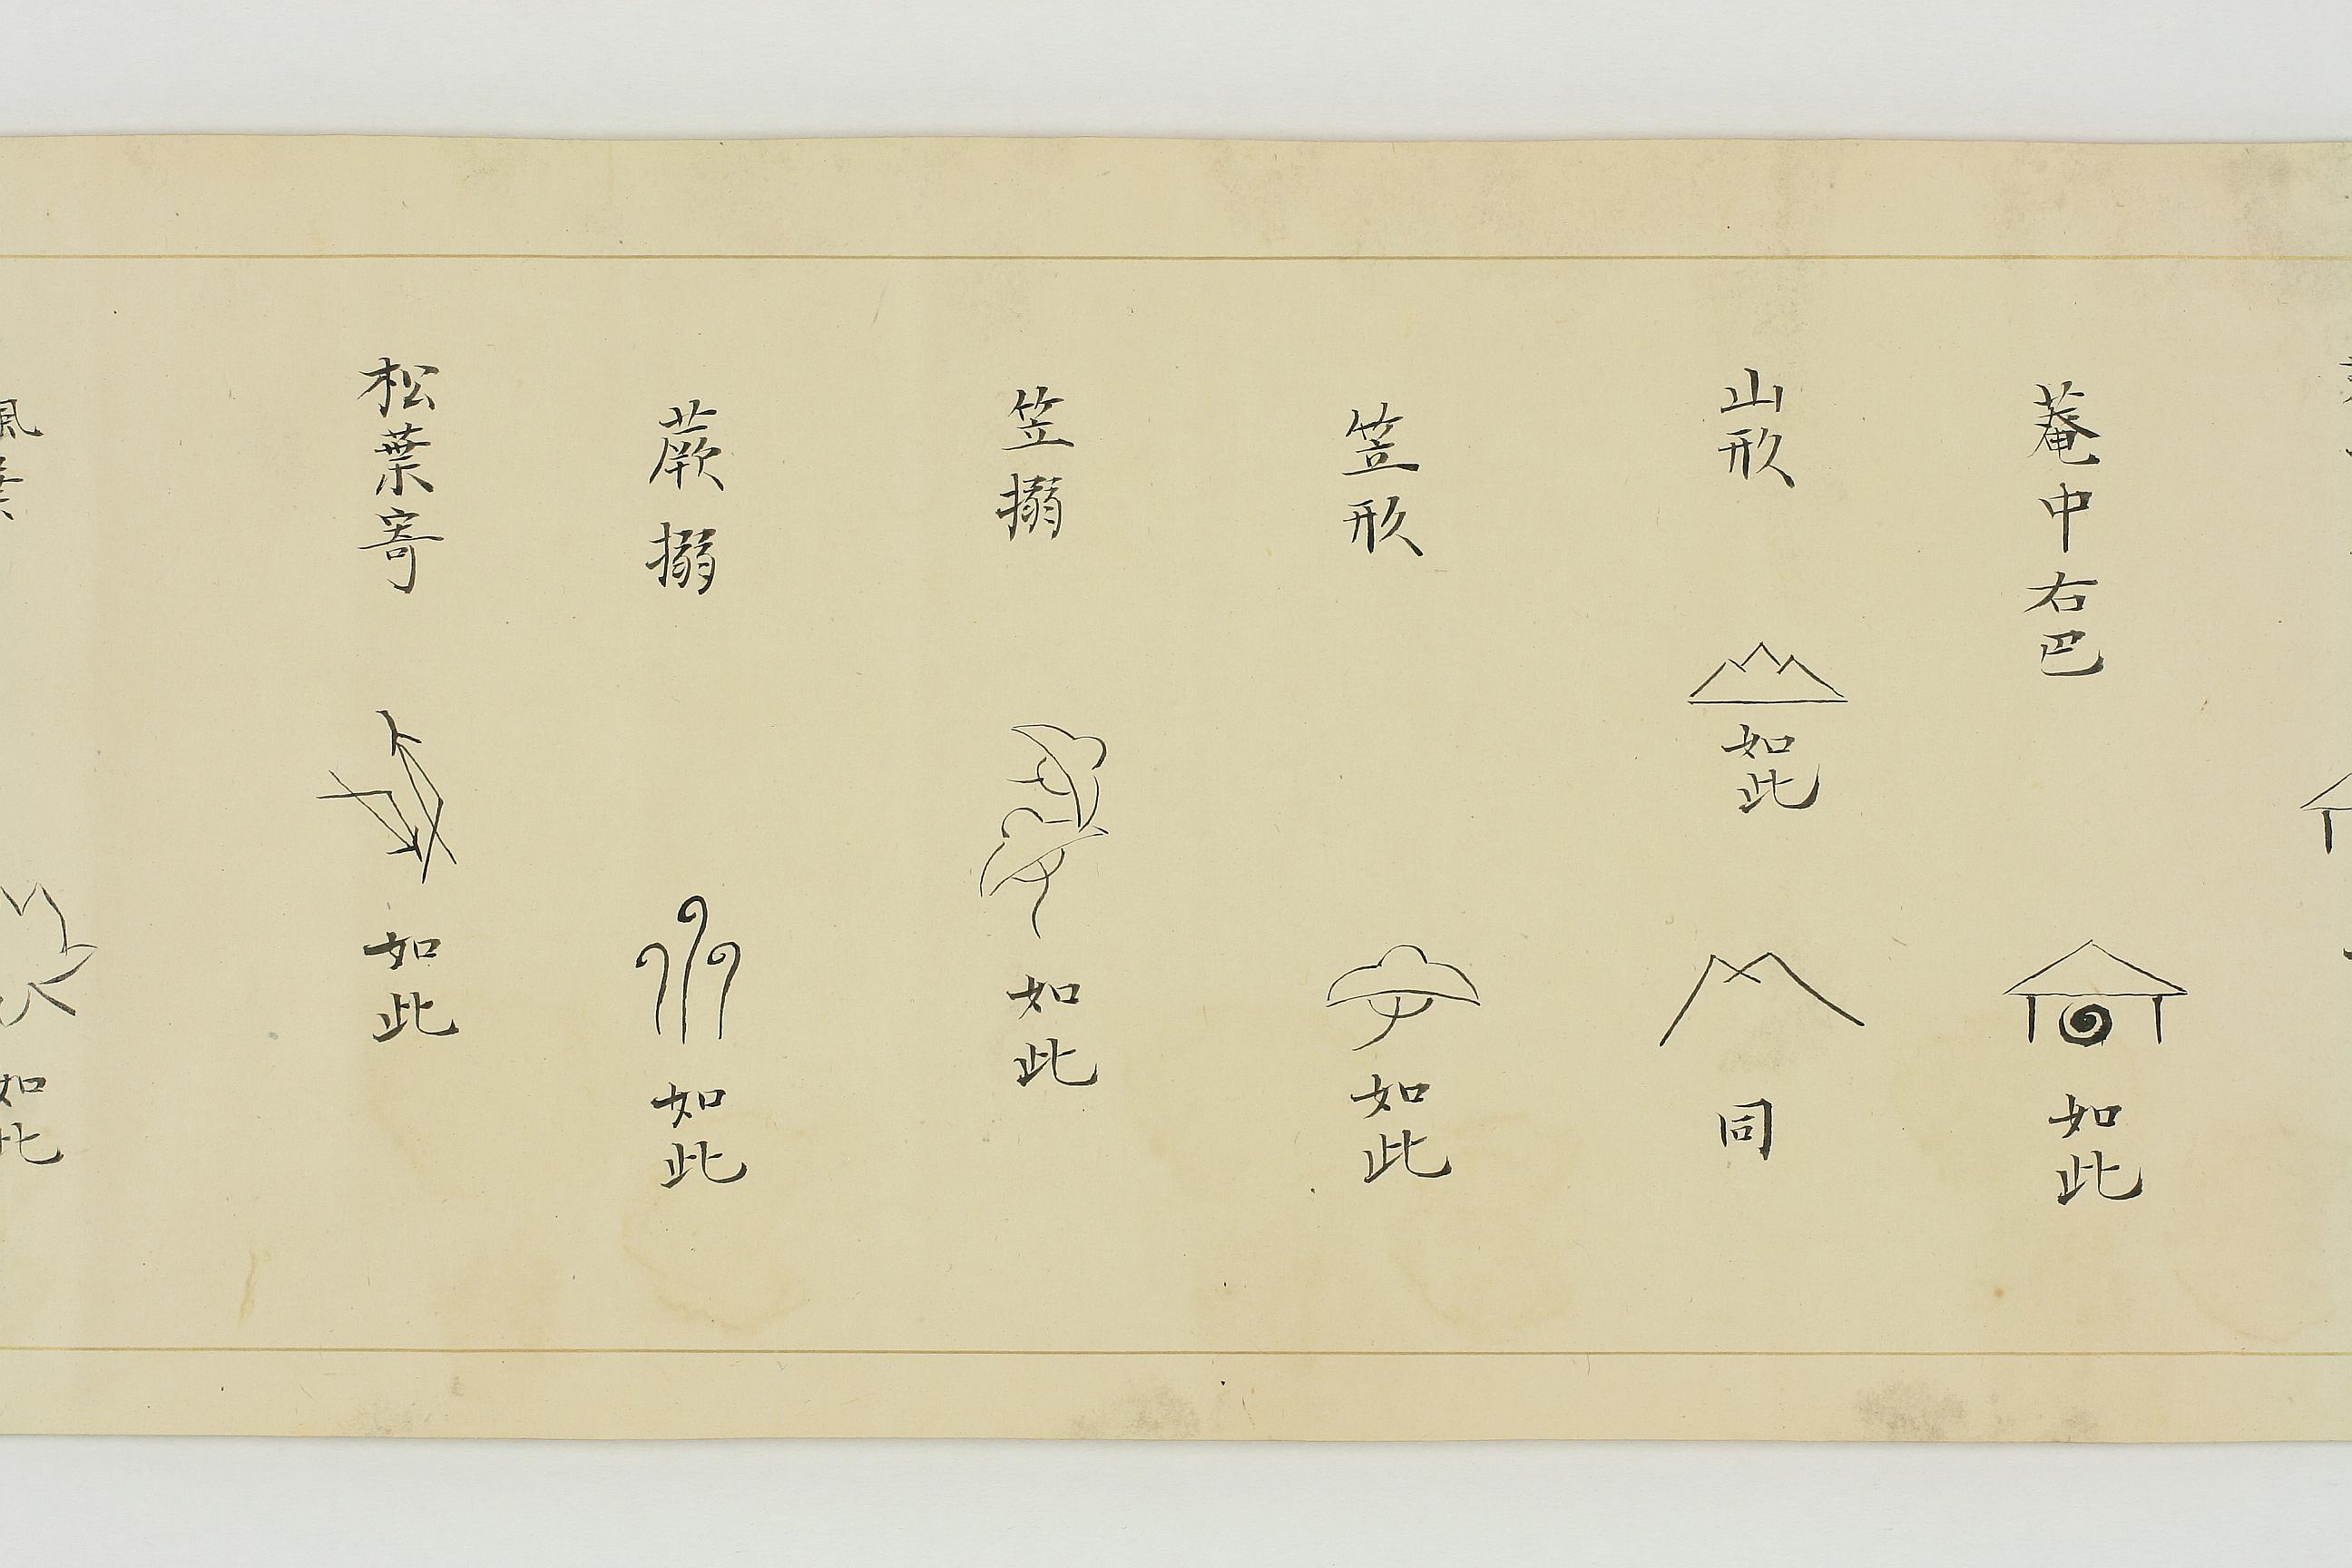 菴中右巴
如此
山形
如此
同
笠形
如此
笠搦
如此
蕨搦
如此
松葉寄
如此
如此